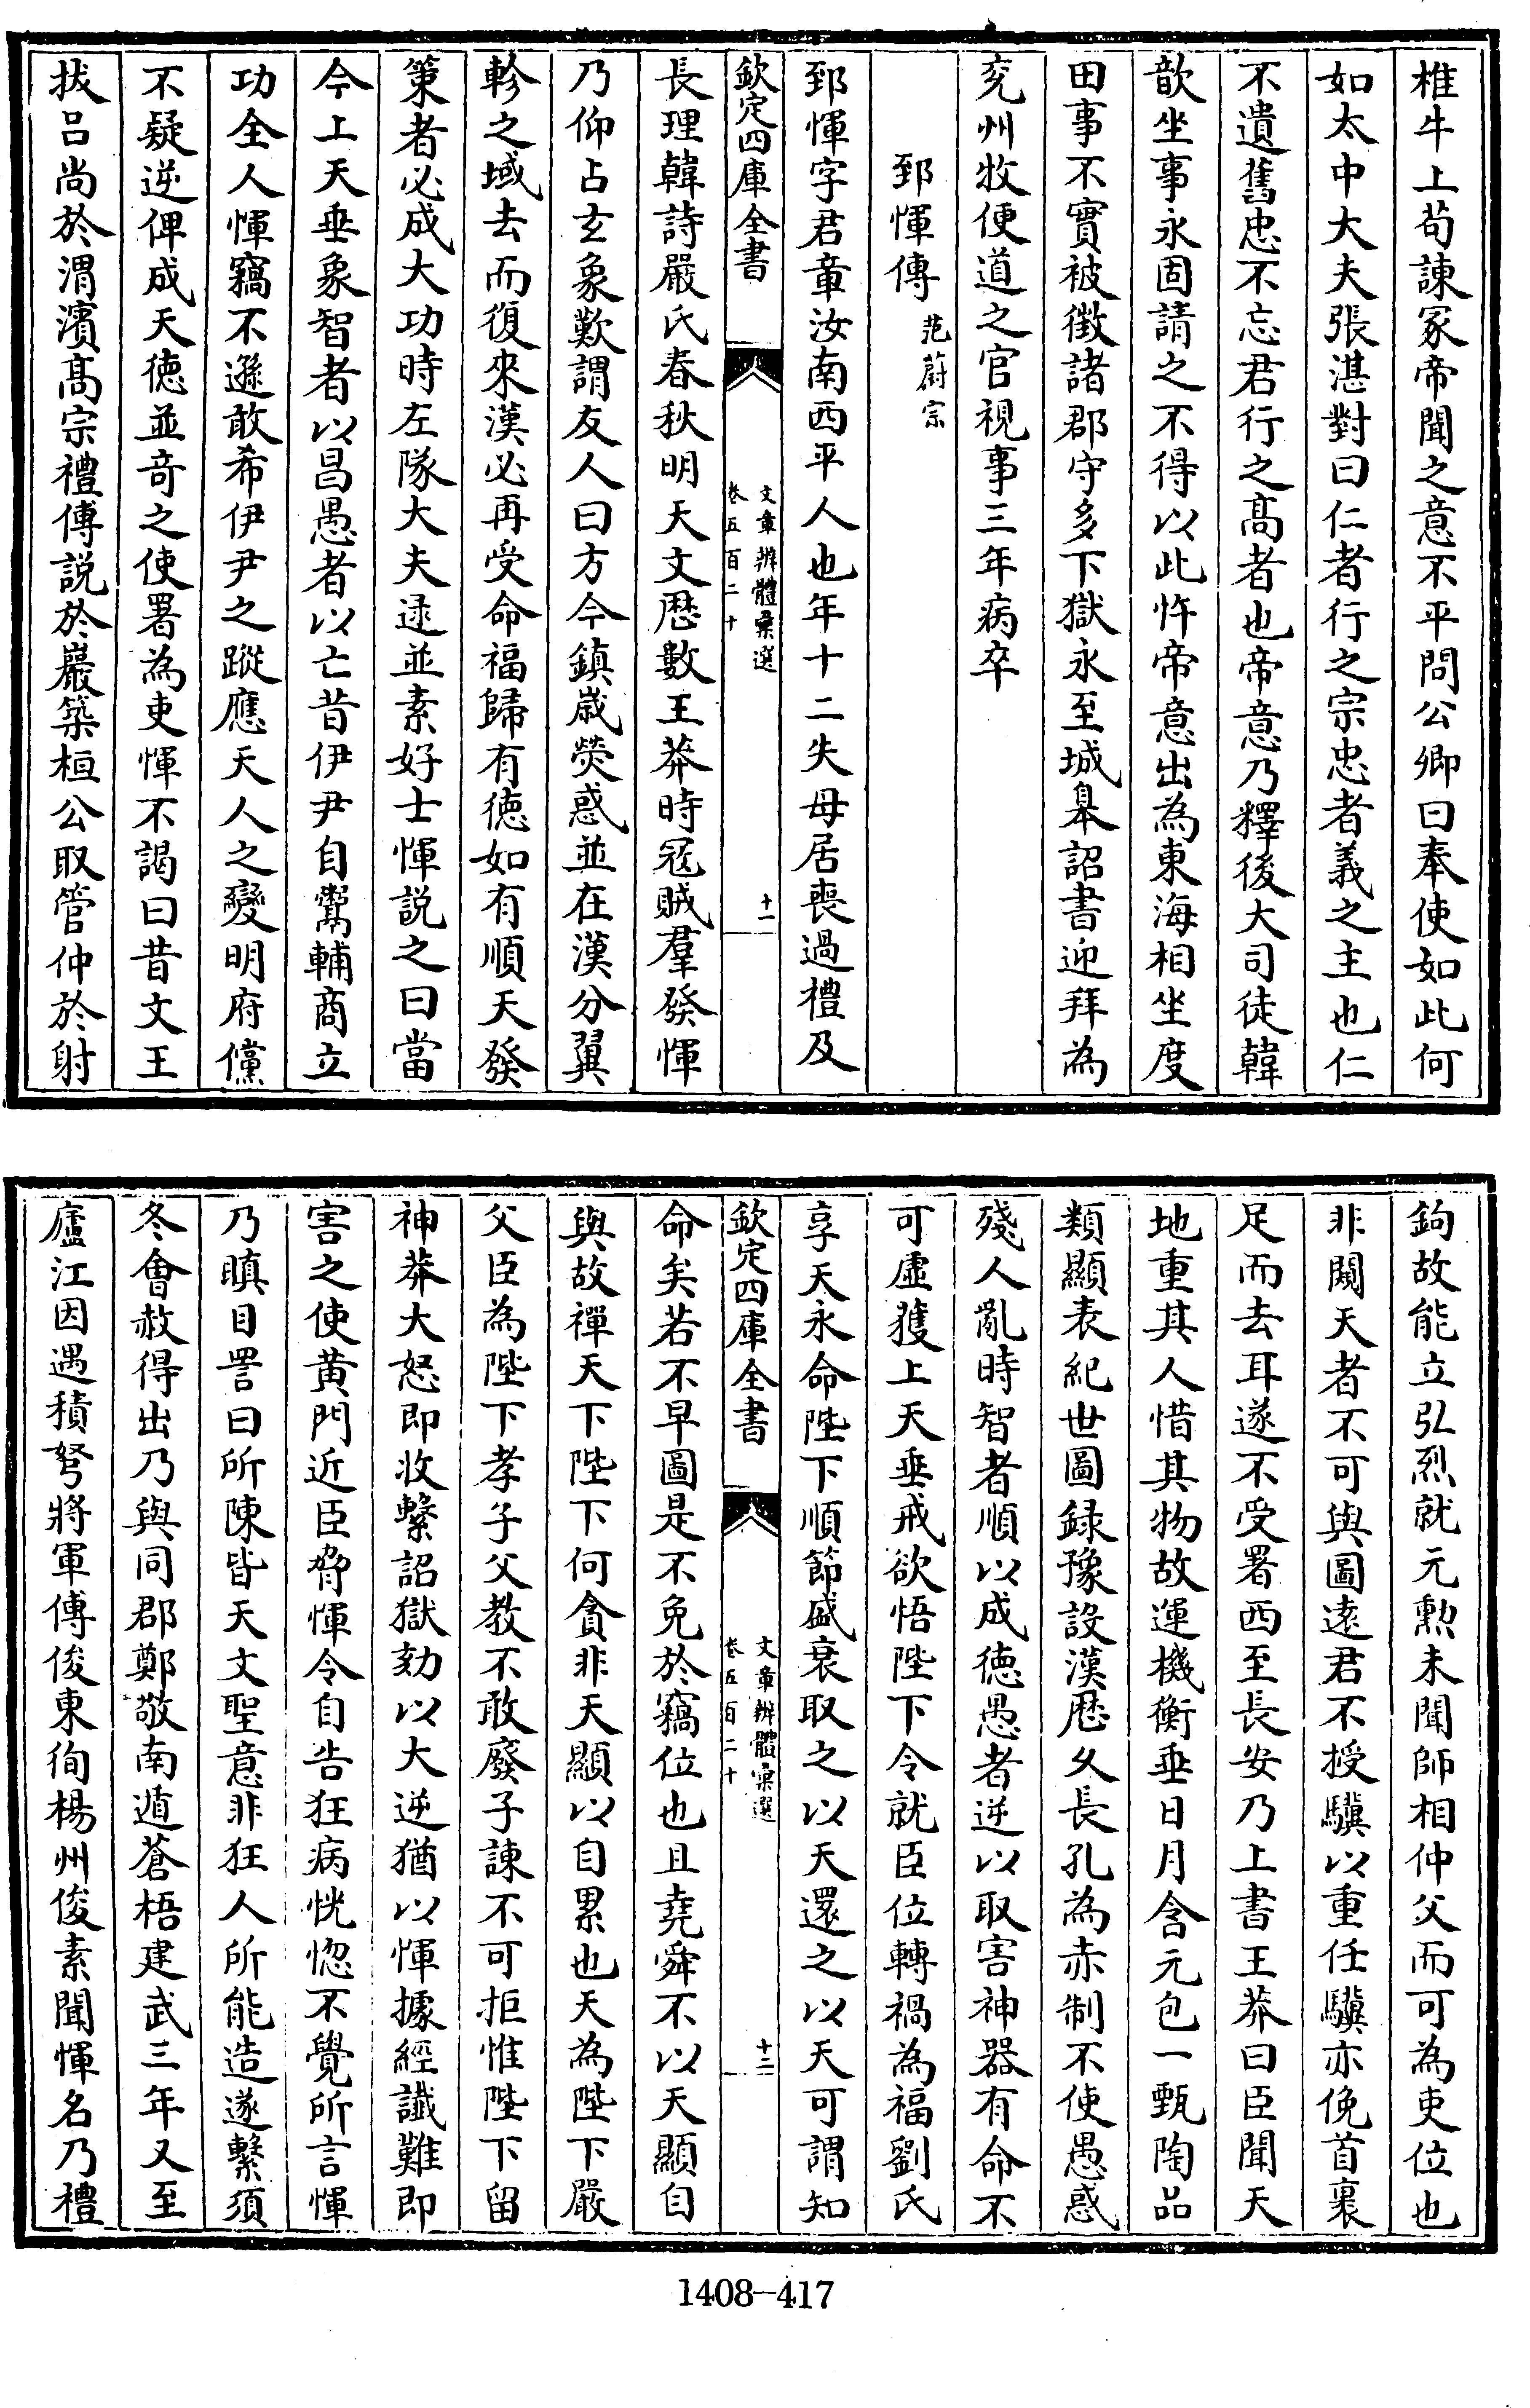 椎牛上苟諫冢帝聞之意不平問公卿曰奉使如此何
如太中大夫張湛對曰仁者行之宗忠者義之主也仁
不遺舊忠不忘君行之髙者也帝意乃釋後大司徒韓
歆坐事永固請之不得以此忤帝意出為東海相坐度
田事不實被徴諸郡守多下獄永至城臯詔書迎拜為
兖州牧便道之官視事三年病卒
郅惲傳 范蔚宗
郅惲字君章汝南西平人也年十二失母居喪過禮及
欽定四庫全書 文章辨體彚選 卷五百二十 十一
長理韓詩嚴氏春秋明天文厯數王莽時冦賊羣發惲
乃仰占玄象歎謂友人曰方今鎮歲熒惑並在漢分翼
軫之域去而復來漢必再受命福歸有徳如有順天發
策者必成大功時左隊大夫逯並素好士惲説之曰當
今上天垂象智者以昌愚者以亡昔伊尹自鬻輔商立
功全人惲竊不遜敢希伊尹之蹤應天人之變明府儻
不疑逆俾成天徳並竒之使署為吏惲不謁曰昔文王
拔吕尚於渭濱髙宗禮傅説於巖築桓公取管仲於射
鉤故能立弘烈就元勲未聞師相仲父而可為吏位也
非闚天者不可與圖逺君不授驥以重任驥亦俛首裹
足而去耳遂不受署西至長安乃上書王莽曰臣聞天
地重其人惜其物故運機衡垂日月含元包一甄陶品
類顯表紀世圖録豫設漢厯久長孔為赤制不使愚惑
殘人亂時智者順以成徳愚者逆以取害神器有命不
可虚獲上天垂戒欲悟陛下令就臣位轉禍為福劉氏
享天永命陛下順節盛衰取之以天還之以天可謂知
欽定四庫全書 文章辨體彚選 卷五百二十 十二
命矣若不早圖是不免於竊位也且堯舜不以天顯自
與故禪天下陛下何貪非天顯以自累也天為陛下嚴
父臣為陛下孝子父教不敢廢子諫不可拒惟陛下留
神莽大怒即收繫詔獄劾以大逆猶以惲據經讖難即
害之使黄門近臣脅惲令自告狂病恍惚不覺所言惲
乃瞋目詈曰所陳皆天文聖意非狂人所能造遂繫須
冬會赦得出乃與同郡鄭敬南遁蒼梧建武三年又至
廬江因遇積弩將軍傅俊東徇楊州俊素聞惲名乃禮
1408-417